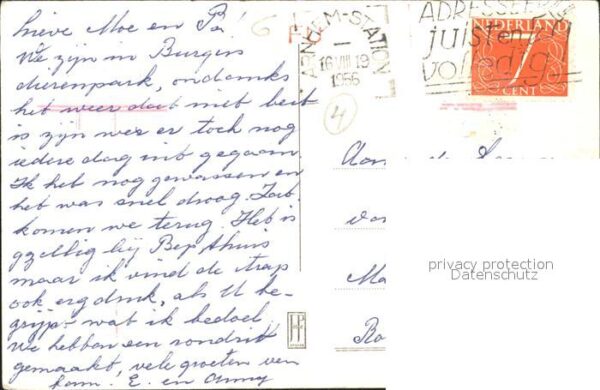 Lieve Moe en Pa!
We zijn in Burgers
dierenpark, ondanks
het weer dat niet best
is zijn we er toch nog
iedere dag uit gegaan
Ik heb nog gewassen en
het was snel droog. Zat.
komen we terug. Het is
gezellig bij Bep thuis
maar ik vind de trap
ook erg druk, als U be-
grijpt wat ik bedoel,
We hebben een rondrit
gemaakt, vele groeten van
fam. E. en Anny
6
ARNHEM-STATION
16 VIII 19
1956
4
ADRESSEER
juist en
volledig
NEDERLAND
7
CENT
Aan
privacy protection
Datenschutz